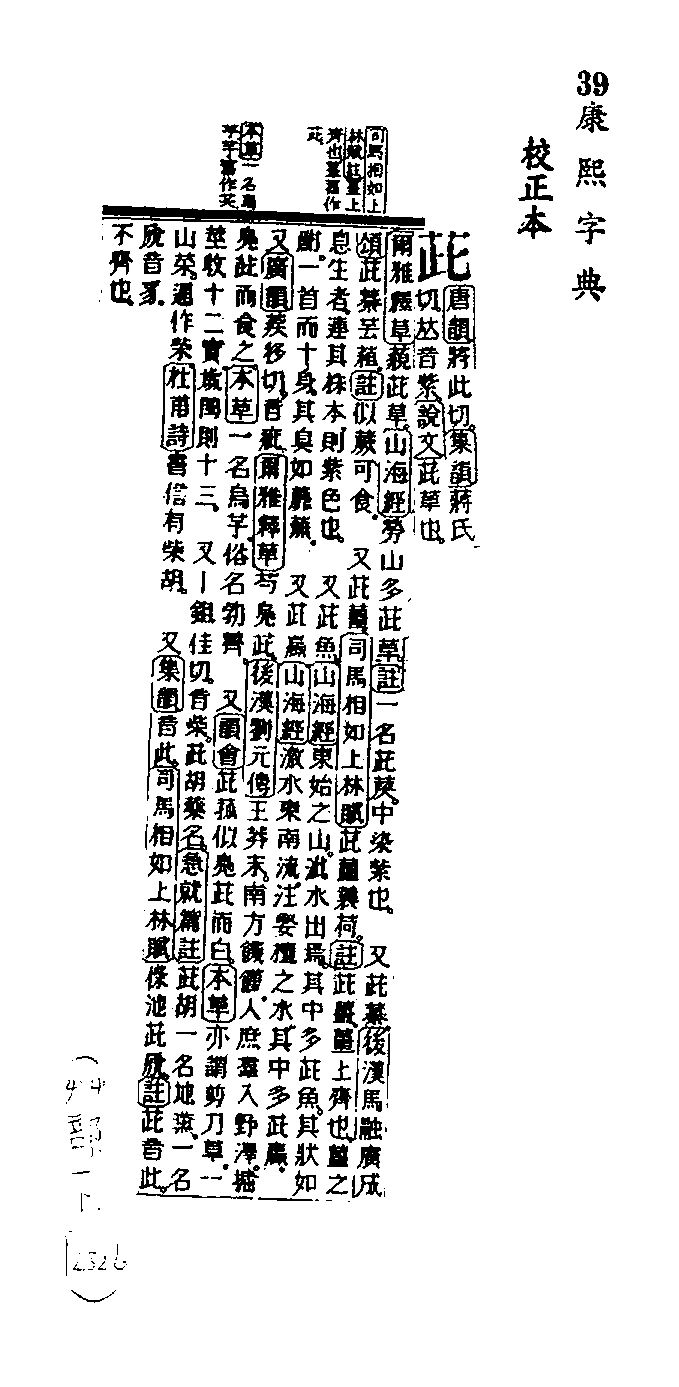 39
康熙字典
校正本
司馬相如上
林賦註薑上
齊也薑舊作
茈
本草一名烏
芋芋舊作茨
茈
唐韻將此切集韻蔣氏
切𠀤音紫說文茈草也
爾雅釋草藐茈草山海經勞山多茈草註一名茈䓞中染紫也 又茈綦後漢馬融廣成
頌茈綦芸蒩註似蕨可食 又茈薑司馬相如上林賦茈薑蘘荷註茈薑薑上齊也薑之
息生者連其株本則紫色也 又茈魚山海經東始之山泚水出焉其中多茈魚其狀如
鮒一首而十身其臭如蘪蕪 又茈蠃山海經激水東南流注娶檀之水其中多茈蠃
又廣韻疾移切音疵爾雅釋草芍鳧茈後漢劉元傳王莽末南方饑饉人庶羣入野澤掘
鳧茈而食之本草一名烏芋俗名勃臍 又韻會茈菰似鳧茈而白本草亦謂剪刀草一
莖收十二實歲閏則十三 又鉏佳切音柴茈胡藥名急就篇註茈胡一名地薰一名
山菜通作柴杜甫詩書信有柴胡 又集韻音此司馬相如上林賦傂池茈虒註茈音此
虒音豸
不齊也
艸部一下
2326